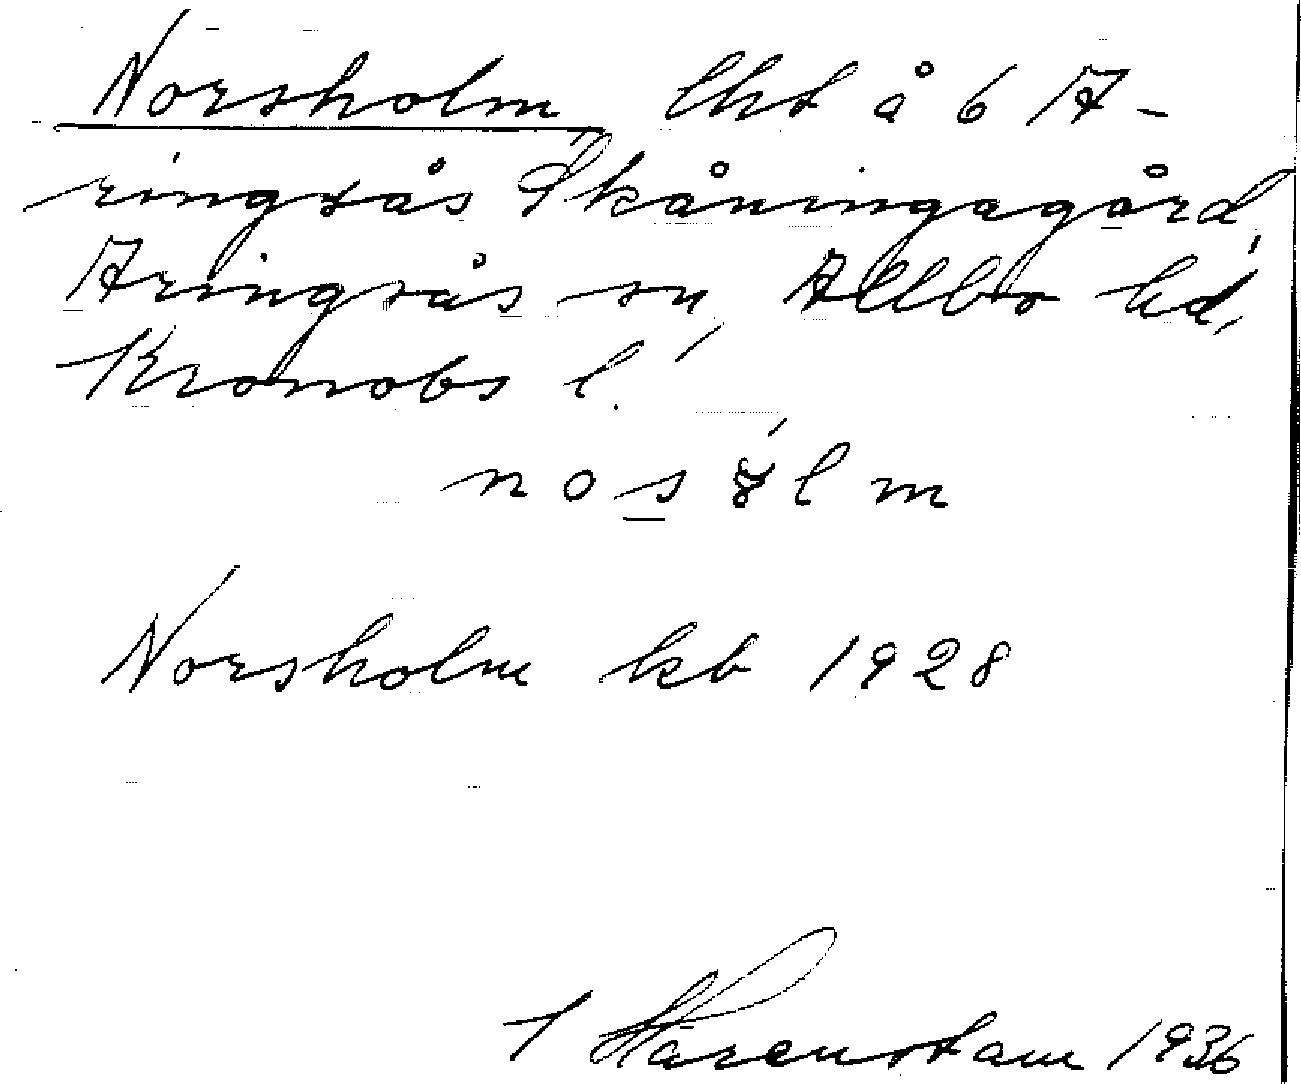 Norsholm, lht å 6 A-
ringsås Skåningagård,
Aringsås sn, Allbo hd,
Kronobs l.
nosɤlm
Norsholm kb 1928
I Härenstam 1936